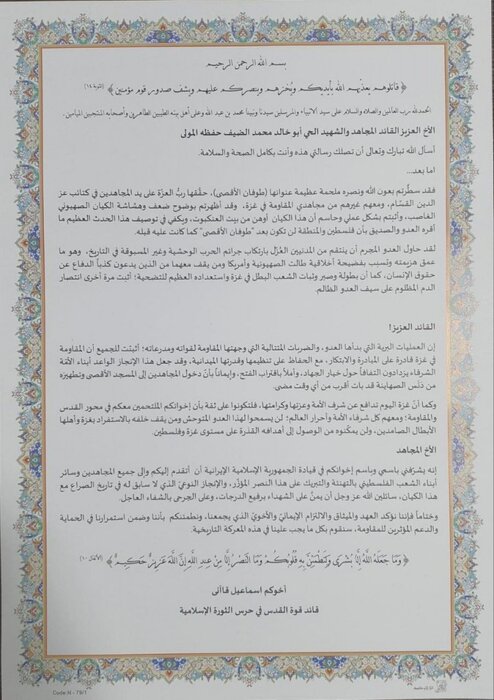 بسم الله الرحمن الرحيم
﴿ قاتلوهم يعذبهم الله بأيديكم ويُخزهم وينصركم عليهم ويشف صدور قوم مؤمنين ﴾ (التوبة ١٤)
الحمدلله رب العالمين والصلاة والسلام على سيد الأنبياء والمرسلين سيدنا ونبينا محمد بن عبد الله وعلى أهل بيته الطيبين الطاهرين وأصحابه المنتجبين الميامين.
الأخ العزيز القائد المجاهد والشهيد الحي أبو خالد محمد الضيف حفظه المولى
أسأل الله تبارك وتعالى أن تصلك رسالتي هذه وأنت بكامل الصحة والسلامة.
اما بعد...
فقد سطّرتم بعون الله ونصره ملحمة عظيمة عنوانها (طوفان الأقصى)، حققها ربُّ العزّة على يد المجاهدين في كتائب عز
الدين القسّام، ومعهم غيرهم من مجاهدي المقاومة في غزة، وقد أظهرتم بوضوح ضعف وهشاشة الكيان الصهيوني
الغاصب، وأثبتم بشكل عملي وحاسم أن هذا الكيان أوهن من بيت العنكبوت، ويكفي في توصيف هذا الحدث العظيم ما
أقره العدو والصديق بأن فلسطين والمنطقة لن تكون بعد "طوفان الأقصى" كما كانت عليه قبله.
لقد حاول العدو المجرم أن ينتقم من المدنيين العُزّل بارتكاب جرائم الحرب الوحشية وغير المسبوقة في التاريخ، وهو ما
عمق هزيمته وتسبب بفضيحة أخلاقية طالت الصهيونية وأمريكا ومن يقف معهما من الذين يدعون كذباً الدفاع عن
حقوق الإنسان، كما أن بطولة وصبر وثبات الشعب البطل في غزة واستعداده العظيم للتضحية؛ أثبت مرة أخرى انتصار
الدم المظلوم على سيف العدو الظالم.
القائد العزيز!
إن العمليات البرية التي بدأها العدو، والضربات المتتالية التي وجهتها المقاومة لقواته ومدرعاته؛ أثبتت للجميع أن المقاومة
في غزة قادرة على المبادرة والابتكار، مع الحفاظ على تنظيمها وقدرتها الميدانية، وقد جعل هذا الإنجاز الواعد أبناء الأمّة
الشرفاء يزدادون التفافاً حول خيار الجهاد، وأملاً باقتراب الفتح، وإيماناً بأنّ دخول المجاهدين إلى المسجد الأقصى وتطهيره
من دَنَس الصهاينة قد بات أقرب من أي وقت مضى.
وكما أنّ غزة اليوم تدافع عن شرف الأمة وعزتها وكرامتها، فلتكونوا على ثقة بأن إخوانكم الملتحمين معكم في محور القدس
والمقاومة؛ ومعهم كل شرفاء الأمة وأحرار العالم؛ لن يسمحوا لهذا العدو المتوحش ومن يقف خلفه بالاستفراد بغزة وأهلها
الأبطال الصامدين، ولن يمكّنوه من الوصول إلى أهدافه القذرة على مستوى غزة وفلسطين.
الأخ المجاهد
إنه يشرّفني باسمي وباسم إخوانكم في قيادة الجمهورية الإسلامية الإيرانية أن أتقدم إليكم وإلى جميع المجاهدين وسائر
أبناء الشعب الفلسطيني بالتهنئة والتبريك على هذا النصر المؤزّر، والإنجاز النوعيّ الذي لا سابق له في تاريخ الصراع مع
هذا الكيان، سائلين الله عز وجل أن يمنّ على الشهداء برفيع الدرجات، وعلى الجرحى بالشفاء العاجل.
وختاماً فإننا نؤكد العهد والميثاق والالتزام الإيمانيّ والأخويّ الذي يجمعنا، ونطمئنكم بأننا وضمن استمرارنا في الحماية
والدعم المؤثرين للمقاومة، سنقوم بكل ما يجب علينا في هذه المعركة التاريخية.
﴿ وَمَا جَعَلَهُ اللَّهُ إِلَّا بُشْرَى وَلِتَطْمَئِنَّ بِهِ قُلُوبُكُمْ وَمَا النَّصْرُ إِلَّا مِنْ عِندِ اللَّهِ إِنَّ اللَّهَ عَزِيزٌ حَكِيمٌ ﴾ (الأنفال ١٠)
أخوكم اسماعيل قاآنى
قائد قوة القدس في حرس الثورة الإسلامية
Code:N - 79/1